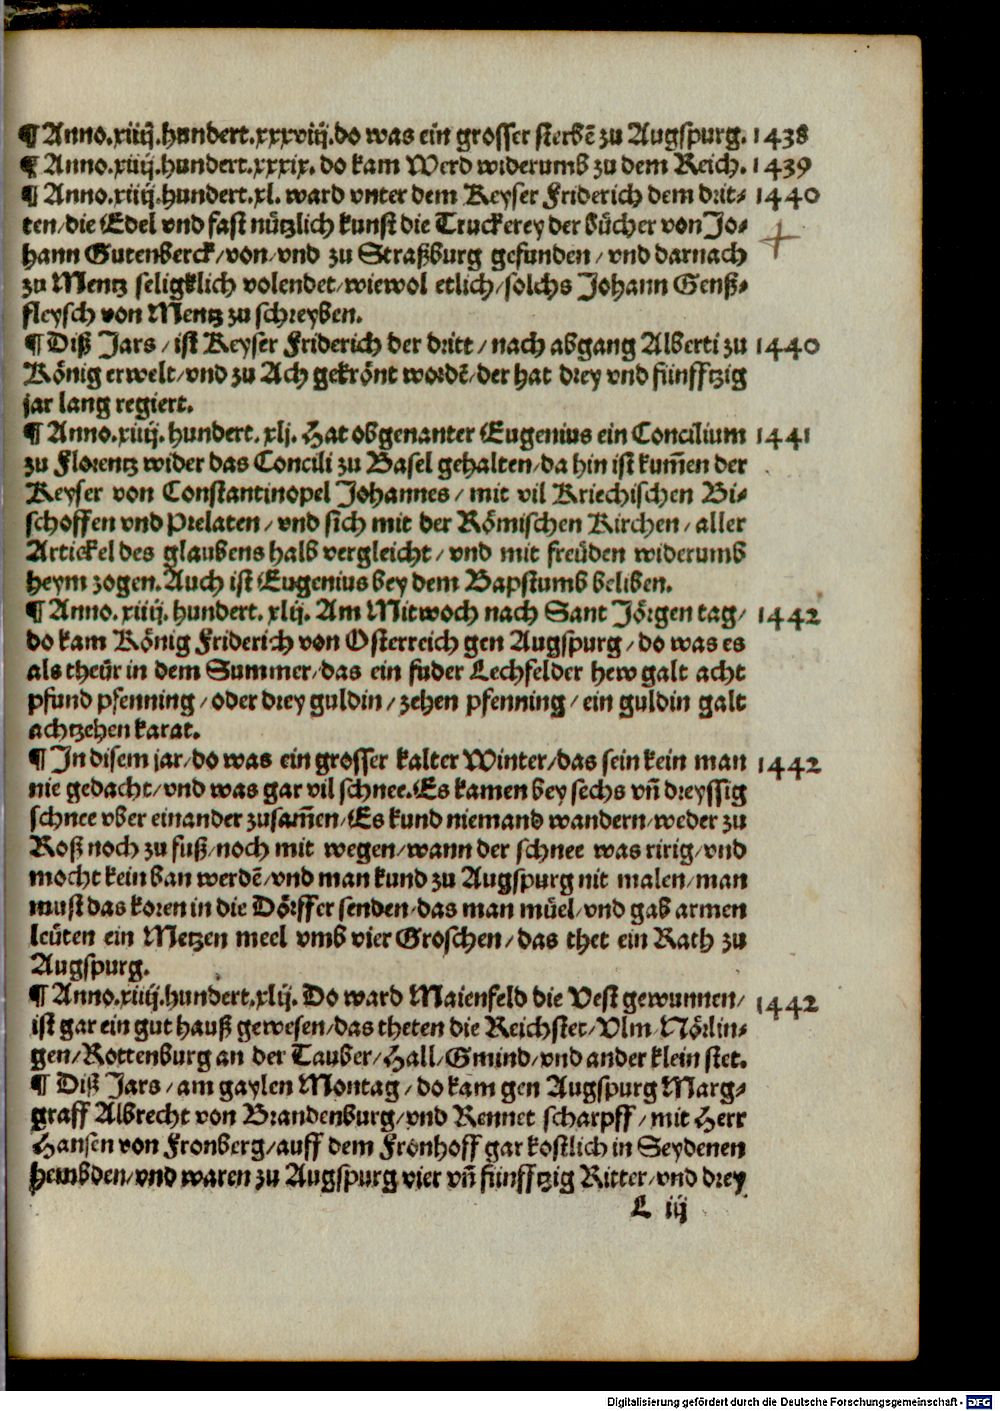 ¶ Anno.xiiij.hundert.xxxviij.do was ein grosser sterbẽ zu Augspurg. 1438
¶ Anno.xiiij.hundert.xxxix. do kam Werd widerumb zu dem Reich. 1439
¶ Anno.xiiij.hundert.xl. ward vnter dem Keyser Friderich dem drit⸗ 1440
ten/die Edel vnd fast nützlich kunst die Truckerey der bücher von Jo⸗
hann Gutenberck/von/vnd zu Straßburg gefunden/vnd darnach
zu Mentz seligklich volendet/wiewol etlich/solchs Johann Genß⸗
fleysch von Mentz zu schreyben.
¶ Diß Jars/ist Keyser Friderich der dritt/nach abgang Alberti zu 1440
König erwelt/vnd zu Ach gekrönt wordẽ/der hat drey vnd fünfftzig
jar lang regiert.
¶ Anno.xiiij.hundert.xlj. Hat obgenanter Eugenius ein Concilium 1441
zu Florentz wider das Concili zu Basel gehalten/da hin ist kum̃en der
Keyser von Constantinopel Johannes/mit vil Kriechischen Bi⸗
schoffen vnd Prelaten/vnd sich mit der Römischen Kirchen/aller
Artickel des glaubens halb vergleicht/vnd mit freüden widerumb
heym zogen.Auch ist Eugenius bey dem Bapstumb beliben.
¶ Anno.xiiij.hundert.xlij. Am Mitwoch nach Sant Jörgen tag/ 1442
do kam König Friderich von Osterreich gen Augspurg/do was es
als theür in dem Summer/das ein fuder Lechfelder hew galt acht
pfund pfenning/oder drey guldin/zehen pfenning/ein guldin galt
achtzehen karat.
¶ In disem jar/do was ein grosser kalter Winter/das sein kein man 1442
nie gedacht/vnd was gar vil schnee.Es kamen bey sechs vñ dreyssig
schnee vber einander zusam̃en/Es kund niemand wandern/weder zu
Roß noch zu fuß/noch mit wegen/wann der schnee was ririg/vnd
mocht kein ban werdẽ/vnd man kund zu Augspurg nit malen/man
must das koren in die Dörffer senden/das man müel/vnd gab armen
leüten ein Metzen meel vmb vier Groschen/das thet ein Rath zu
Augspurg.
¶ Anno.xiiij.hundert.xlij. Do ward Maienfeld die Vest gewunnen/ 1442
ist gar ein gut hauß gewesen/das theten die Reichstet/Vlm/Nörlin⸗
gen/Rottenburg an der Tauber/Hall/Gmind/vnd ander klein stet.
¶ Diß Jars/am gaylen Montag/do kam gen Augspurg Marg⸗
graff Albrecht von Brandenburg/vnd Rennet scharpff/mit Herr
Hansen von Fronberg/auff dem Fronhoff gar kostlich in Seydenen
hembden/vnd waren zu Augspurg vier vñ fünfftzig Ritter/vnd drey
L iij
Digitalisierung gefördert durch die Deutsche Forschungsgemeinschaft - DFG